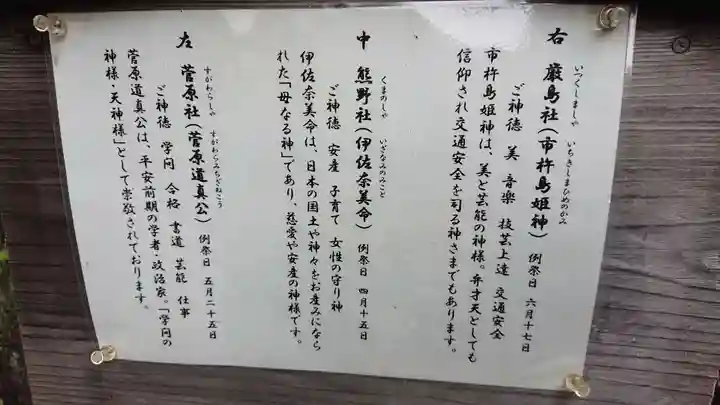 右 厳島社(市杵島姫神) 例祭日 六月十七日
いつくしましゃ いちきしまひめのかみ
ご神徳 美 音楽 技芸上達 交通安全
市杵島姫神は、美と芸能の神様。弁才天としても
信仰され交通安全を司る神さまでもあります。
中 熊野社(伊佐奈美命) 例祭日 四月十五日
くまのしゃ いざなみのみこと
ご神徳 安産 子育て 女性の守り神
伊佐奈美命は、日本の国土や神々をお産みになら
れた「母なる神」であり、慈愛や安産の神様です。
左 菅原社(菅原道真公) 例祭日 五月二十五日
すがわらしゃ すがわらみちざねこう
ご神徳 学問 合格 書道 芸能 仕事
菅原道真公は、平安前期の学者・政治家。「学問の
神様・天神様」として崇敬されております。